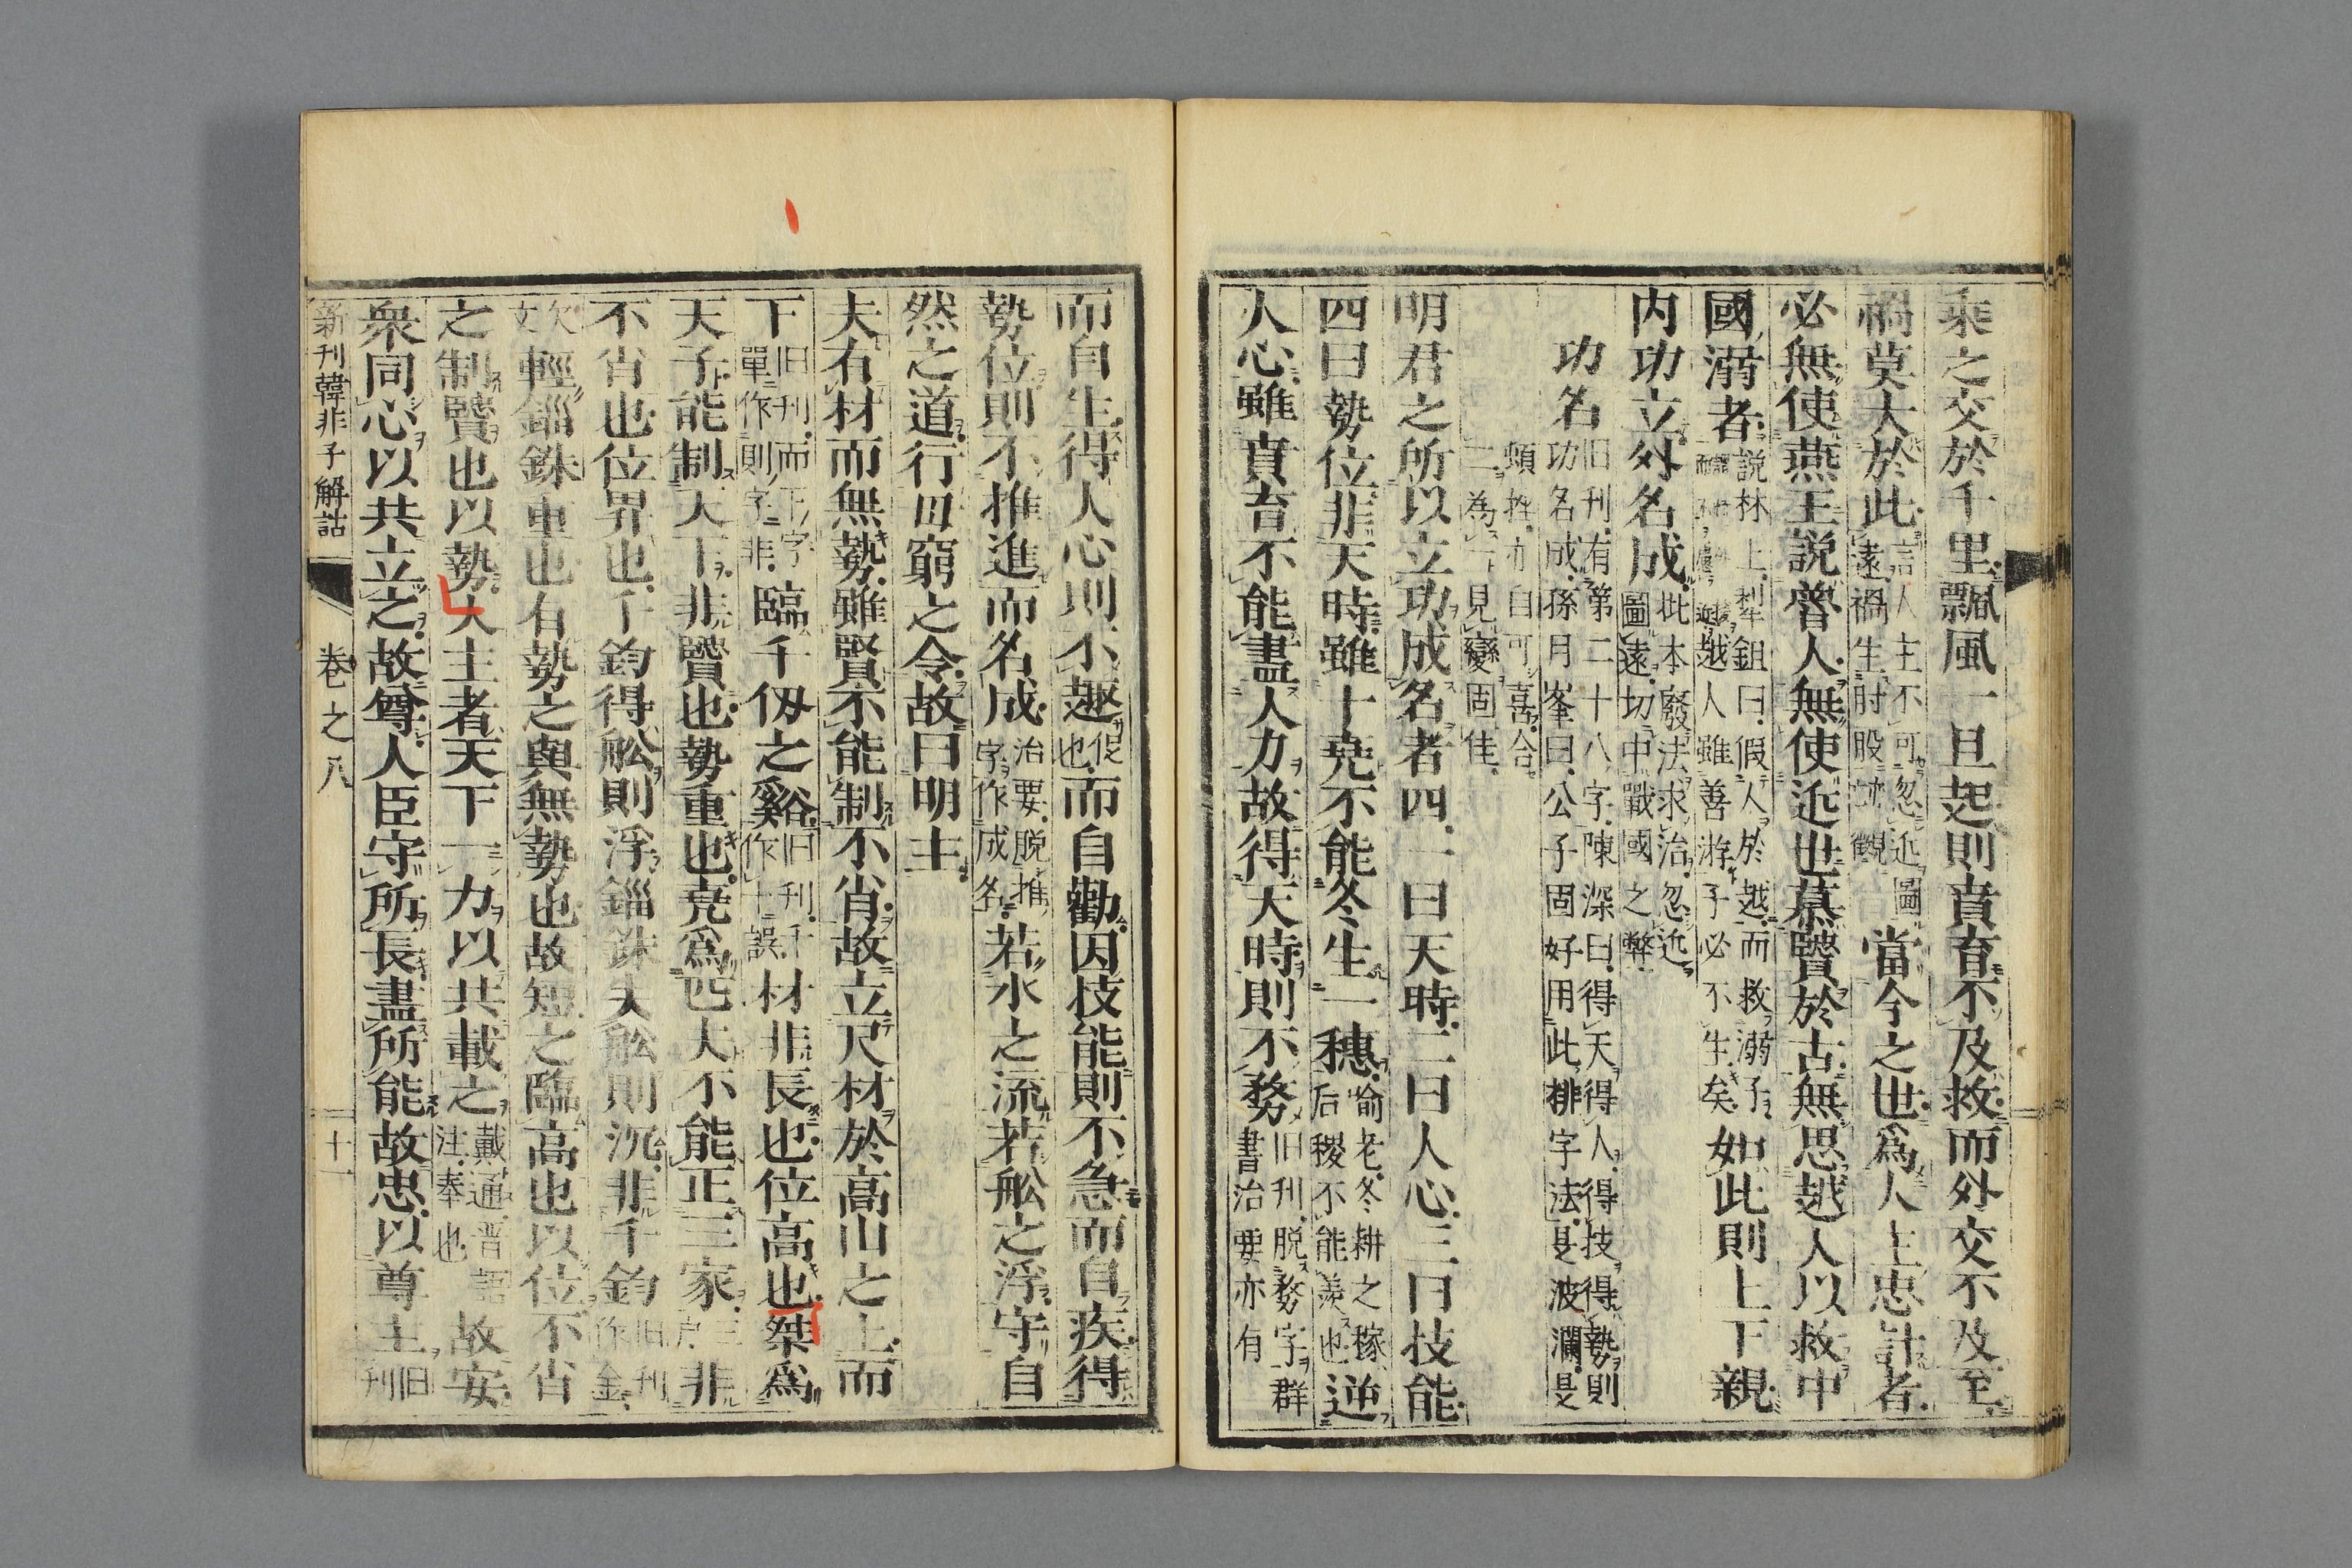 乘之交於千里飄風一旦起則賁育不及救而外交不及至
禍莫大於此言人主不可忽近圖遠禍生肘股當今之世爲人主忠計者
必無使燕王説魯人無使近世慕賢於古無思越人以救中
國溺者説林上犁鉏曰假人於越而救溺子越人雖善游子必不生矣如此則上下親
内功立外名成此本廢法求治忽近圖遠切中戰國之弊
功名旧刊有第二十八字陳深曰得天得人得技得勢則功名成孫月峯曰公子固好用此排字法是波瀾是
頻姓亦自可喜合二爲一見變固佳
明君之所以立功成名者四一曰天時二曰人心三曰技能
四曰勢位非天時雖十堯不能冬生一穗喻老冬耕之稼后稷不能羨也逆
人心雖賁育不能盡人力故得天時則不務旧刊脱務字群書治要亦有
而自生得人心則不趣促也而自勸因技能則不急而自疾得
勢位則不推進而名成治要脱推字作成名若水之流若舩之浮守自
然之道行毋窮之令故曰明主
夫有材而無勢雖賢不能制不肖故立尺材於高山之上而
下旧刊而下字單作則字非臨千仭之谿旧刊千作十誤材非長也位高也桀爲
天子能制天下非賢也勢重也堯爲匹夫不能正三家三戶非
不肖也位畀也千鈞得舩則浮錙銖失舩則沉非千鈞旧刊作金
輕錙銖重也有勢之與無勢也故短之臨高也以位不肖
之制賢也以勢人主者天下一力以共載之戴通晋語注奉也故安
衆同心以共立之故尊人臣守所長盡所能故忠以尊主旧刊
新刊韓非子解詁
卷之八
十一